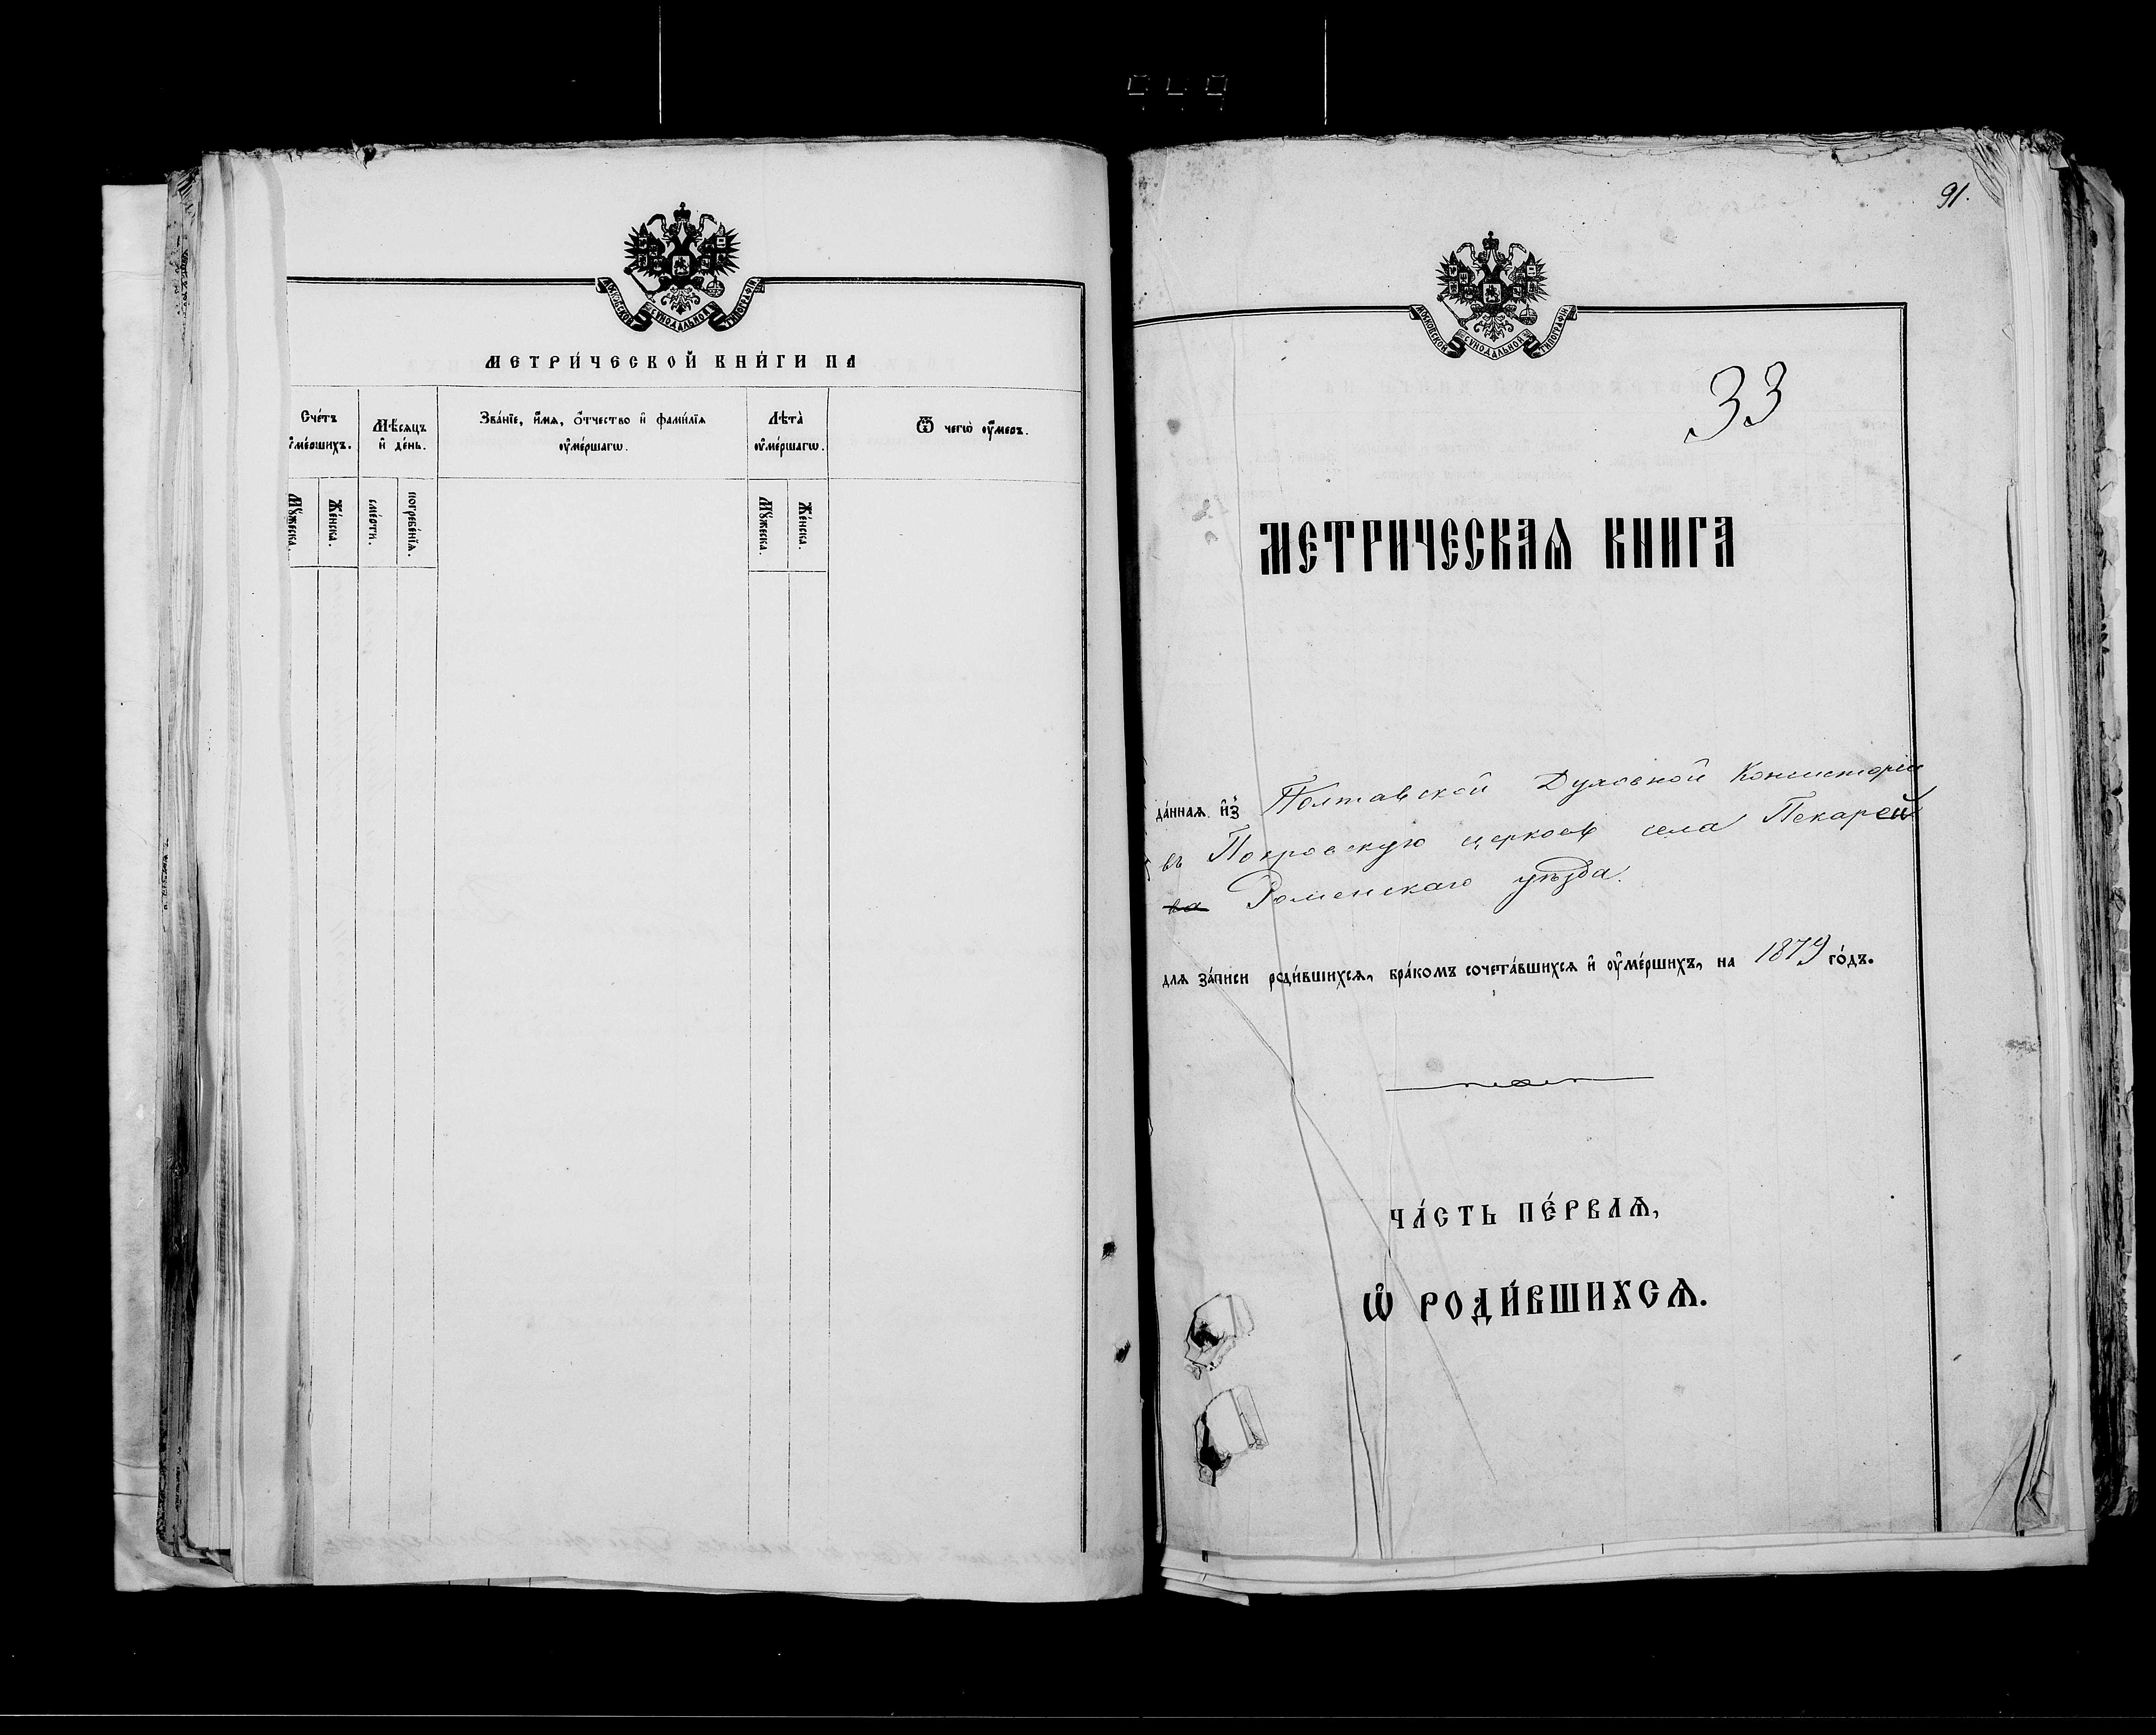 МОСКОВСКОЙ СѴНОДАЛЬНОЙ ТИПОГРАФІИ
МЕТРИ́ЧЕСКОЙ КНИ́ГИ НА
Сче́тъ оу҆ме́ршихъ.
Мѣ́сяцъ и҆ де́нь.
Зва́нїе, и҆́мѧ, ѻ҆́тчество и҆ фами́лїѧ оу҆ме́ршагѡ.
Лѣта̀ оу҆ме́ршагѡ.
Ѿ чегѡ̀ оу҆́меръ.
Мꙋ́жеска.
Же́нска.
сме́рти.
погребе́нїѧ.
Мꙋ́жеска.
Же́нска.
91.
МОСКОВСКОЙ СѴНОДАЛЬНОЙ ТИПОГРАФІИ
33
МЕТРИЧЕСКАѦ КНИГА
да́ннаѧ и҆з̾ Полтавской Духовной Консисторіи
въ Покровскую церковь села Пекарей
ва Роменскаго уѣзда.
длѧ за́писи роди́вшихсѧ, бра́комъ сочета́вшихсѧ и҆ оу҆ме́ршихъ, на 1879 го́дъ.
ЧА́СТЬ ПЕ́РВАѦ,
Ѡ҆ РОДИ́ВШИХСѦ.